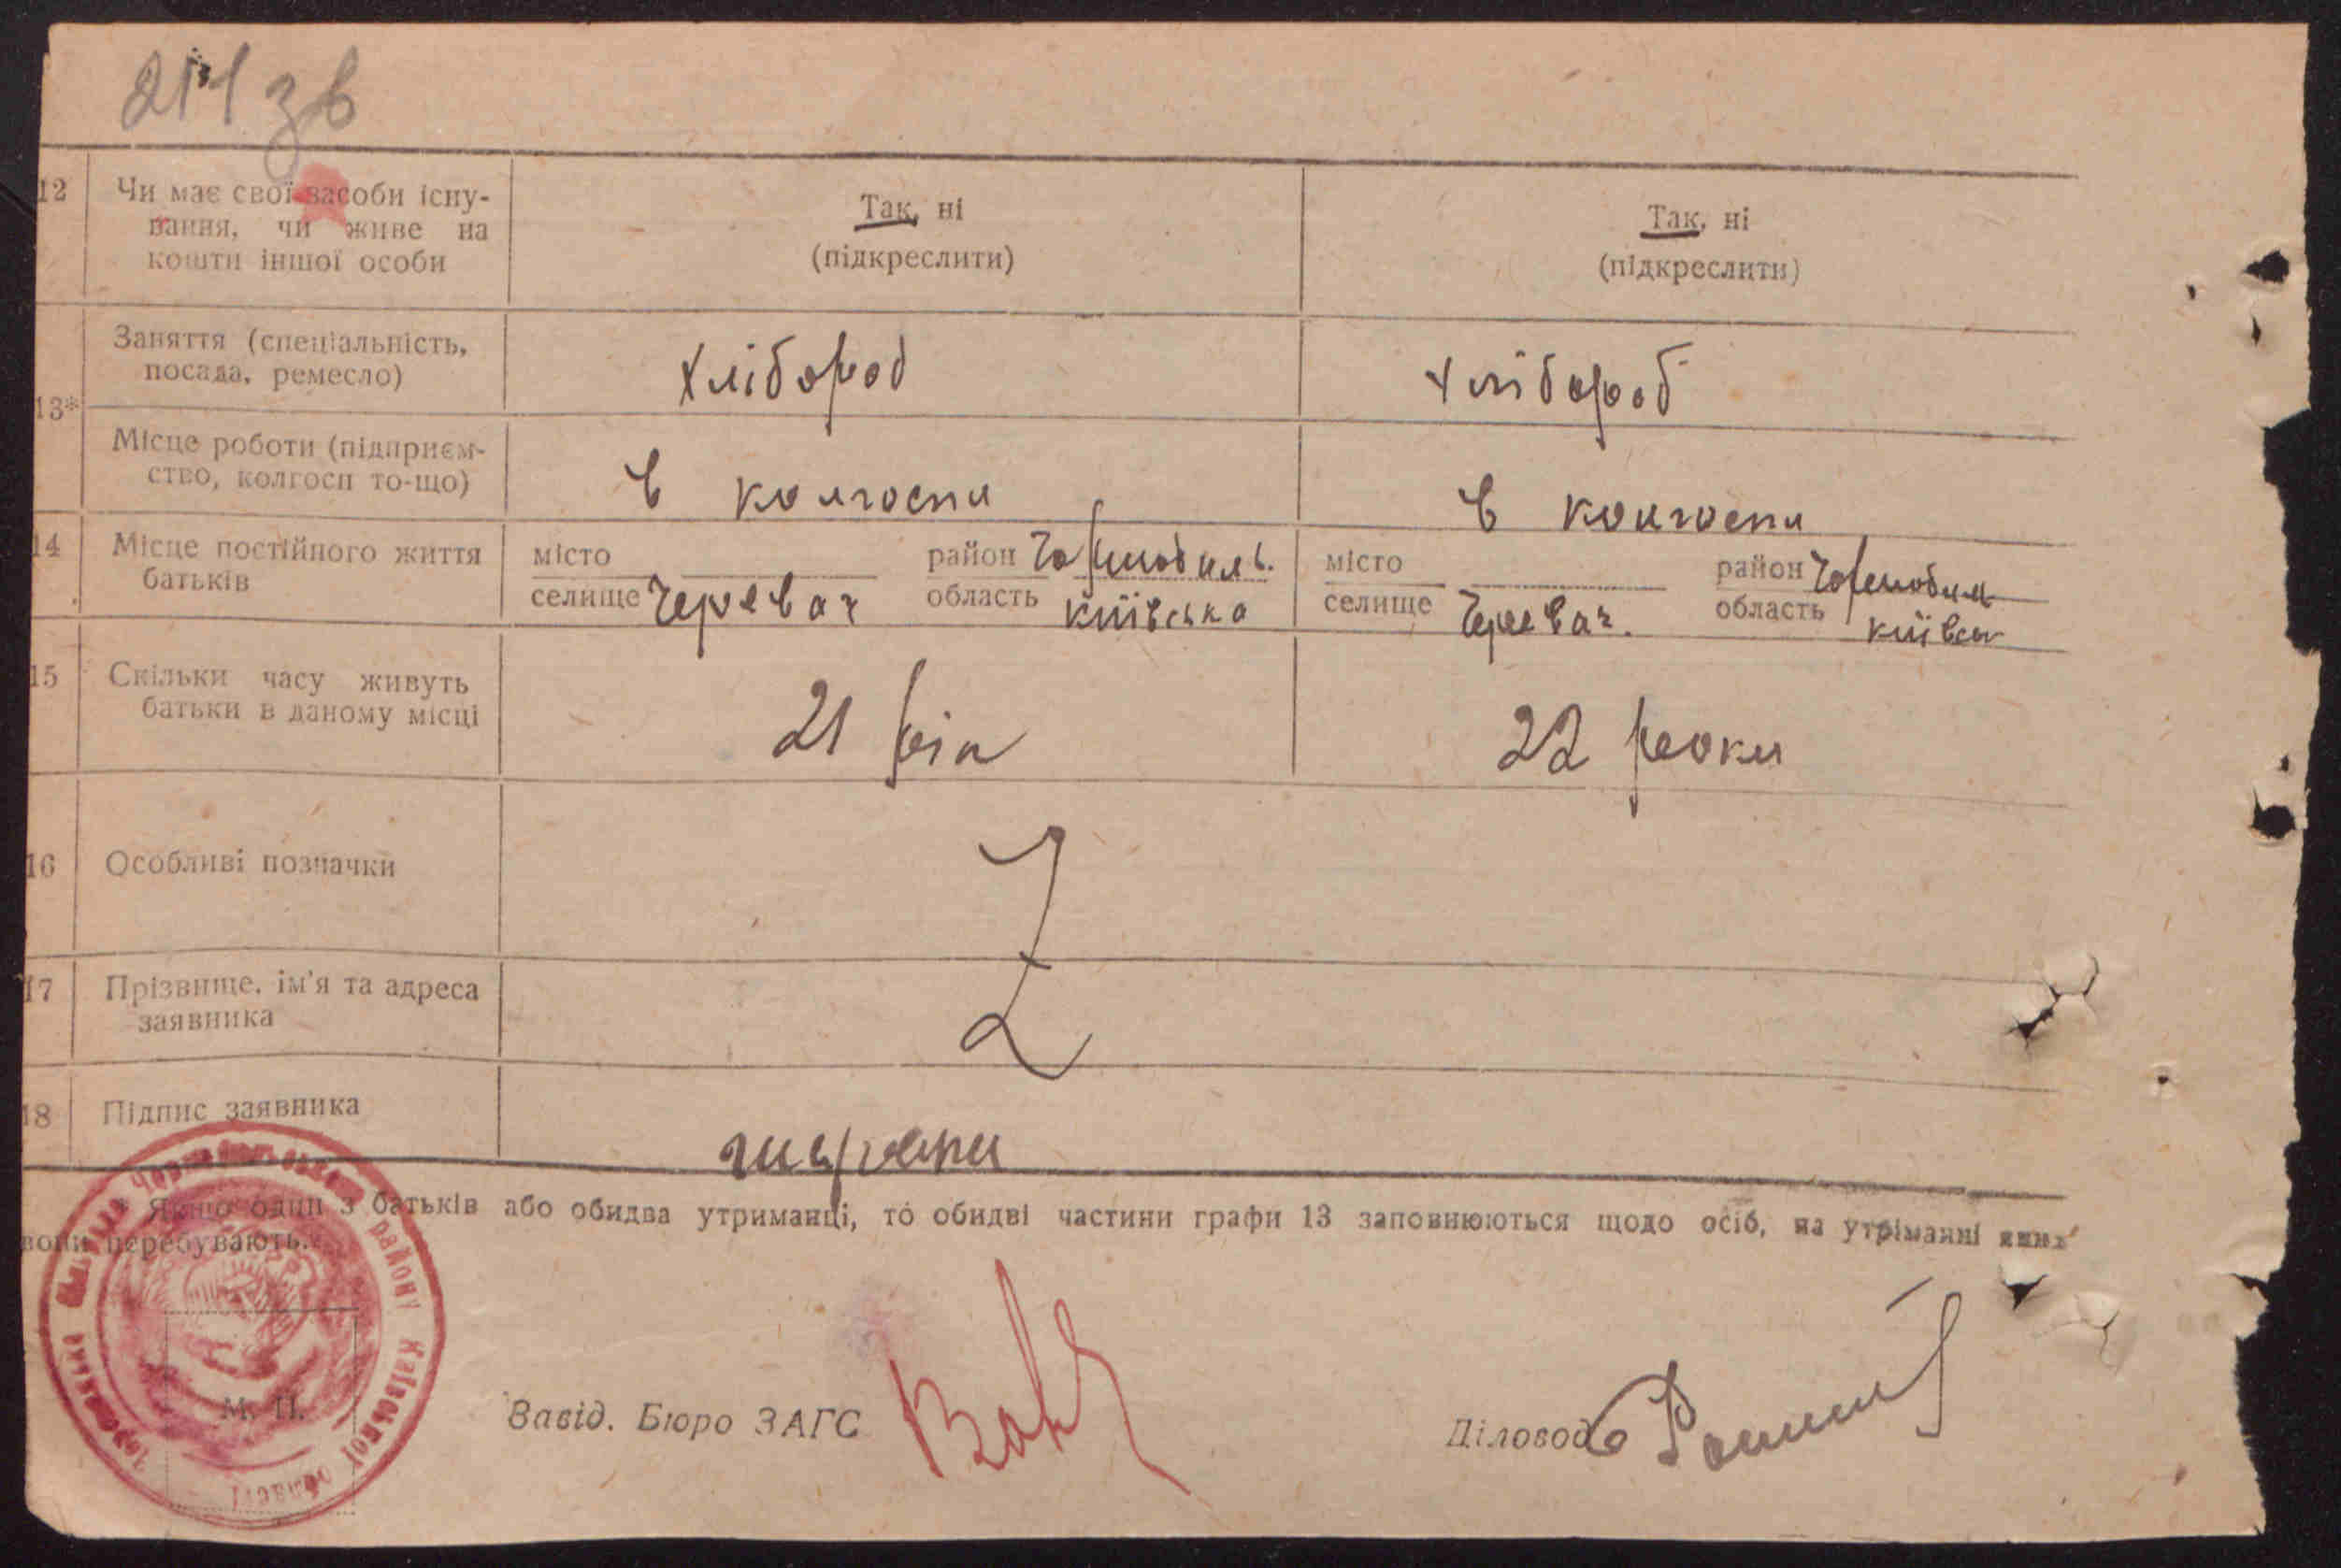 211 зв
12 Чи має свої засоби існу-
вання, чи живе на
кошти іншої особи
Так, ні
(підкреслити)
Так, ні
(підкреслити)
13*
Заняття (спеціальність,
посада, ремесло)
Хлібороб
Хлібороб
Місце роботи (підприєм-
ство, колгосп то-що)
в колгоспи
в колгоспи
14 Місце постійного життя
батьків
місто
селище Черевач
район Чорнобиль.
область київська
місто
селище Черевач.
район Чорнобиль
область київськ
15 Скільки часу живуть
батьки в даному місці
21 рік
22 роки
16 Особливі позначки
17 Прізвище, ім'я та адреса
заявника
18 Підпис заявника
* Якщо один з батьків або обидва утриманці, то обидві частини графи 13 заповнюються щодо осіб, на утріманні яких
вони перебувають.
району Київської області
М. П.
Завід. Бюро ЗАГС
Діловод